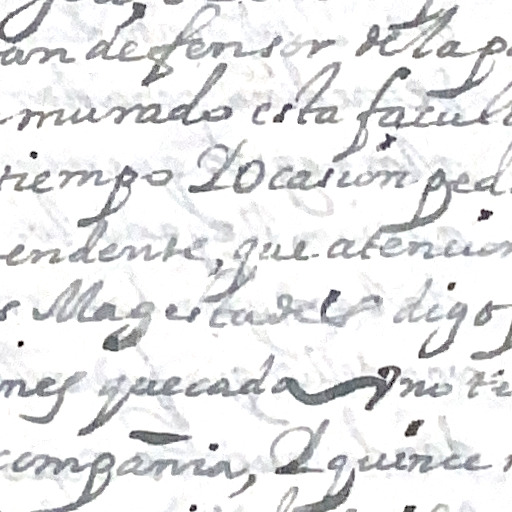 an defensor de la p
murado esta facul
tiempo Y Ocasion ped
endente, que atencion
s Magestades digo
nes que cada Yno ti
compañia, Y quince